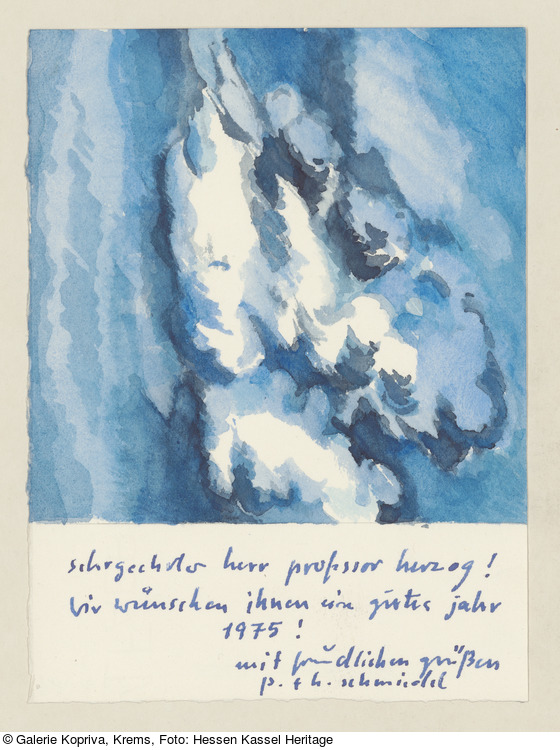 sehrgeehrter herr professor herzog!
wir wünschen ihnen ein gutes jahr
1975!
mit freudlichen grüßen
p. + h. schmiedel
© Galerie Kopriva, Krems, Foto: Hessen Kassel Heritage